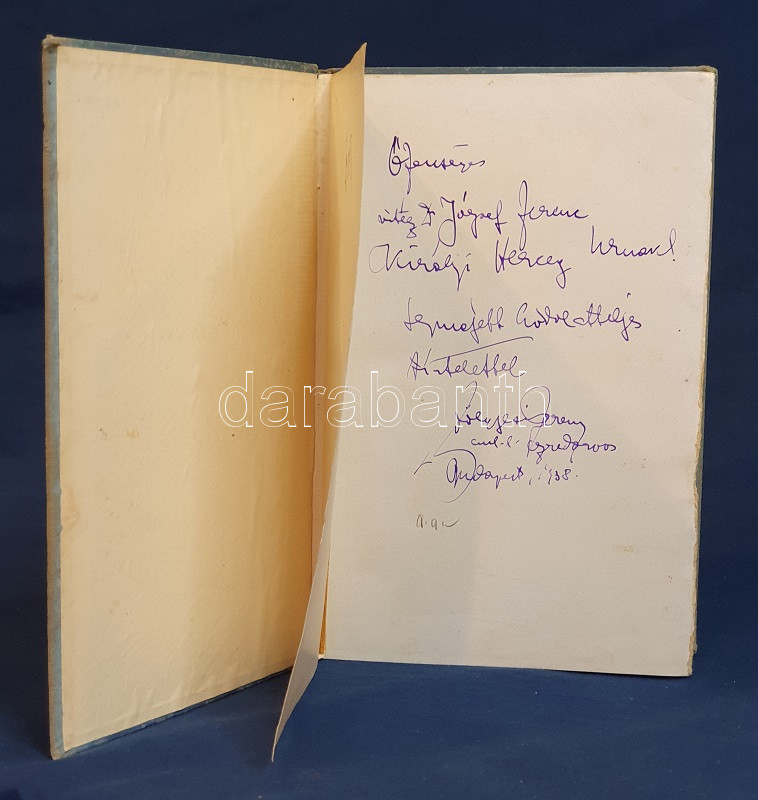 Őfenséges
vitéz Dr József Ferenc
Királyi Herceg Urnak!
legmélyebb hódolatteljes
tisztelettel
Ferenc
ezredorvos
Budapest, 1938.
darabanth